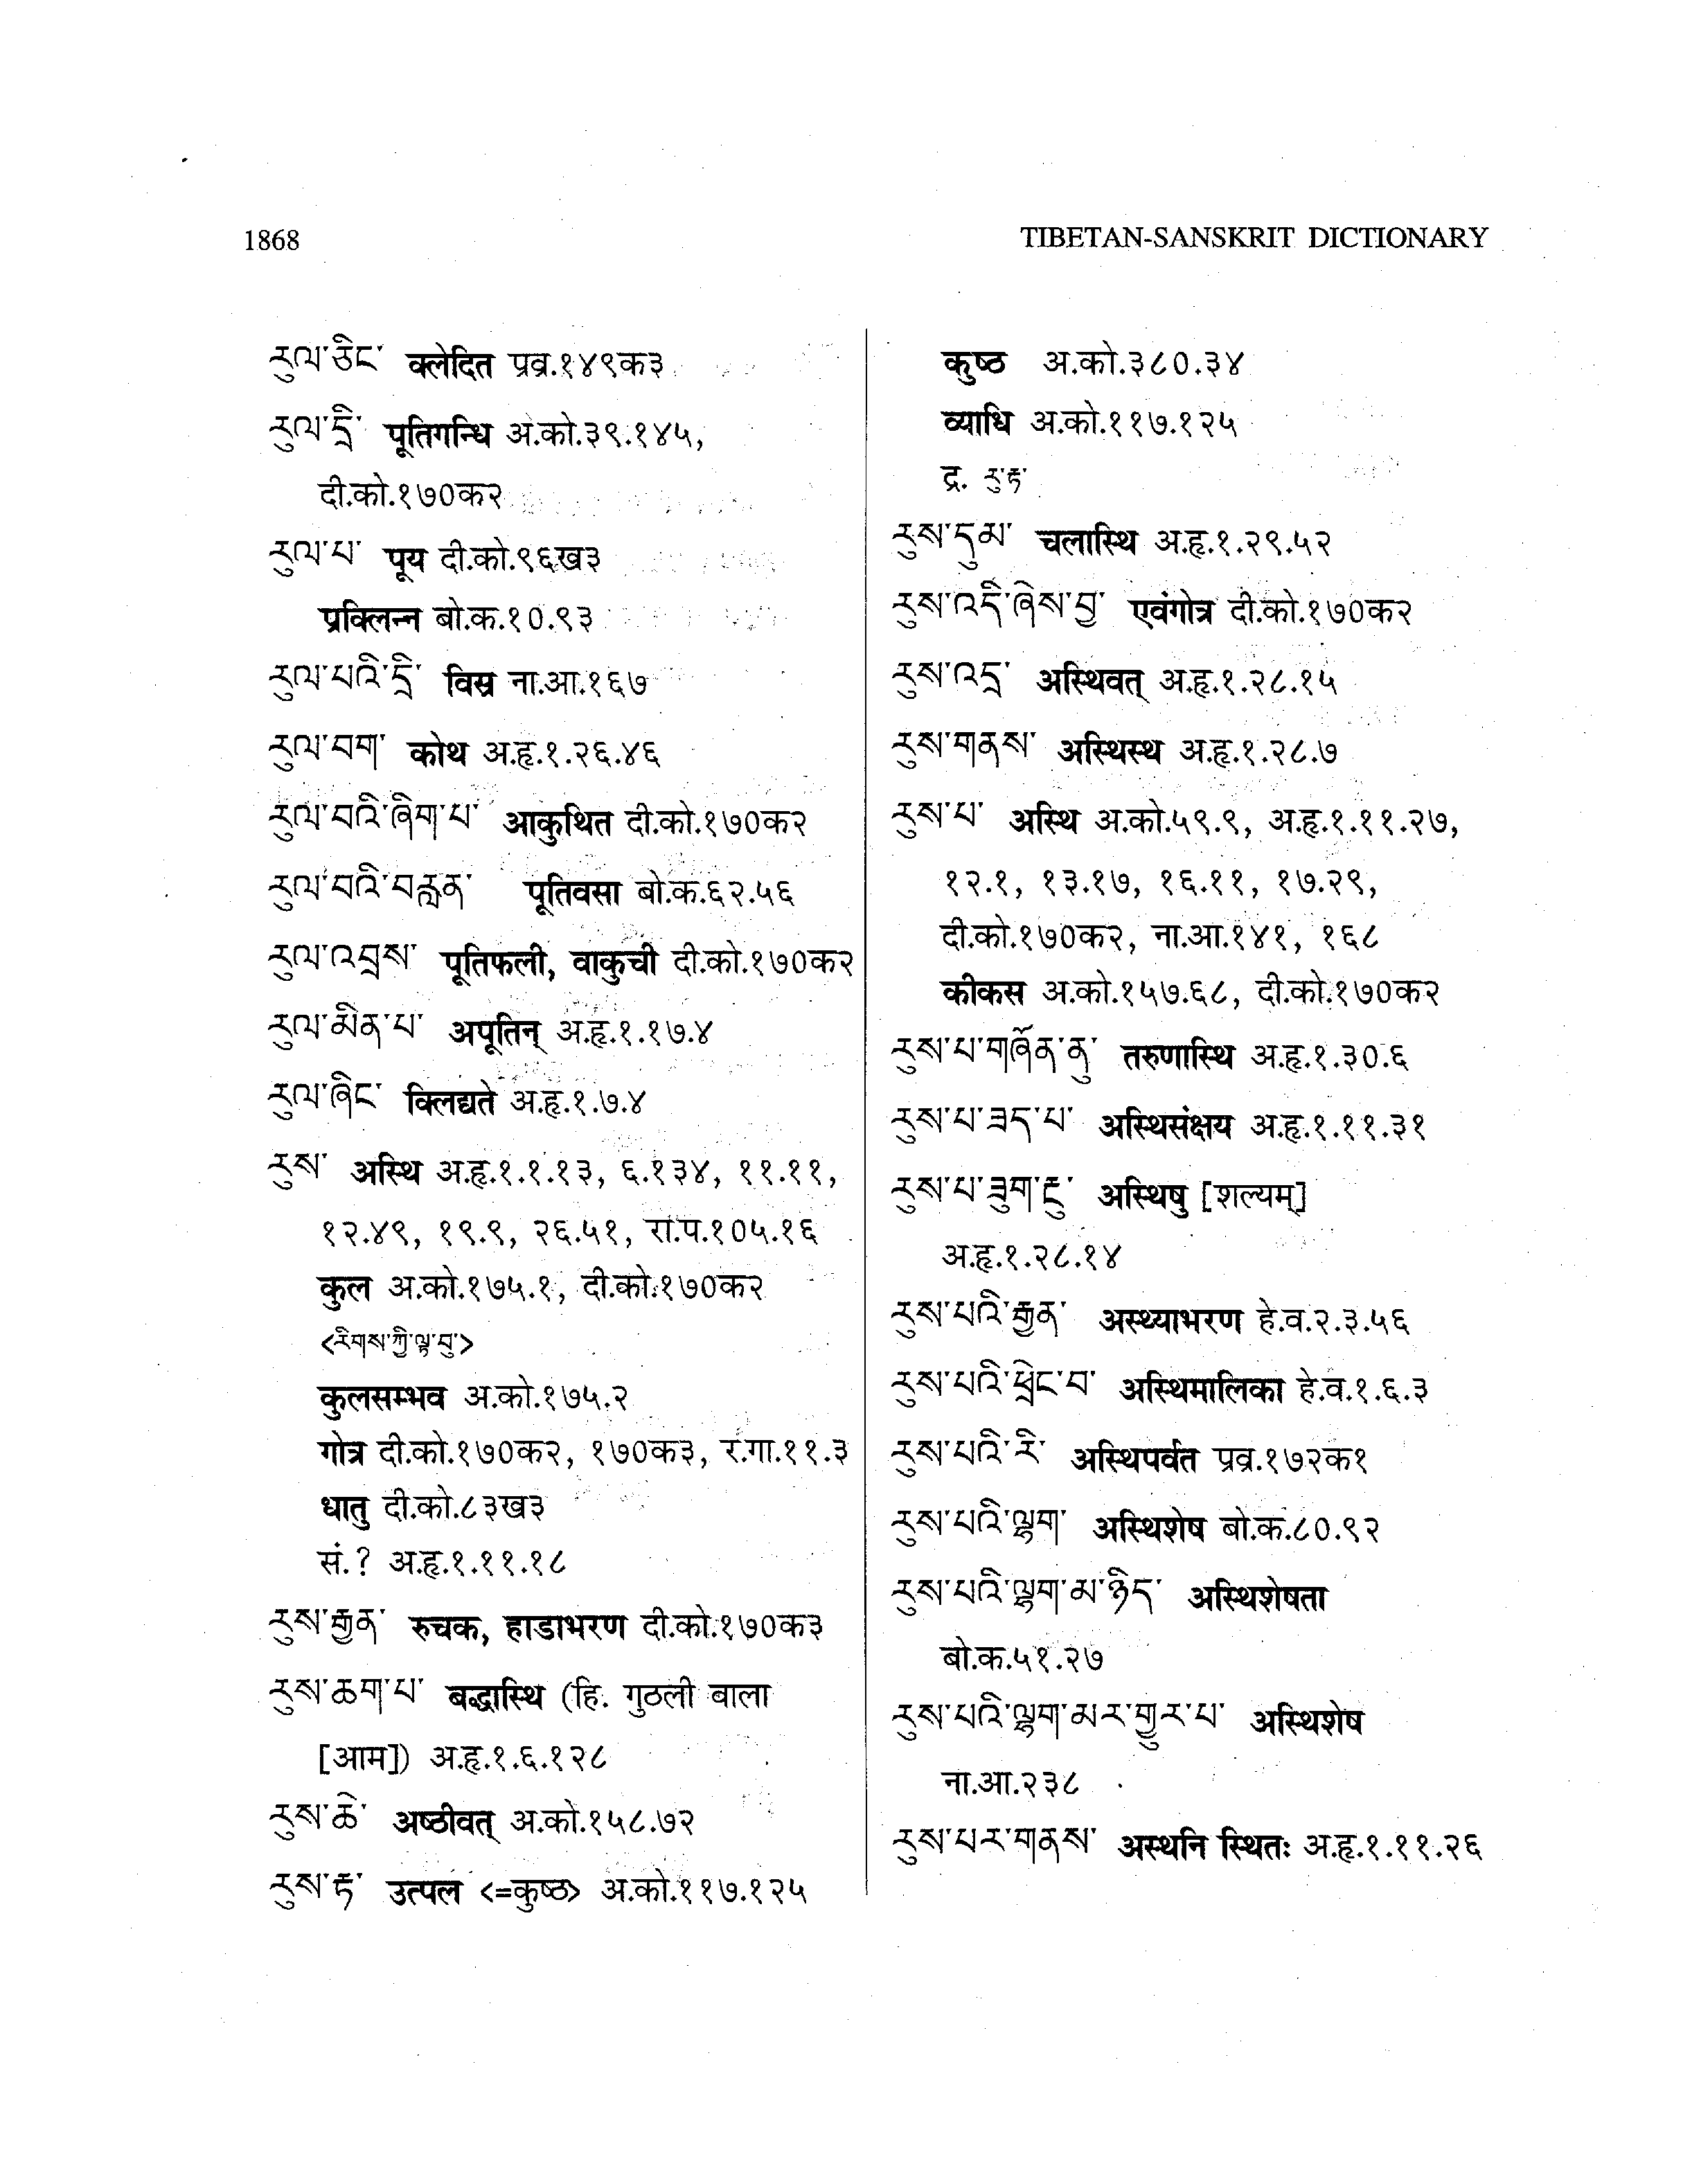 1868
TIBETAN-SANSKRIT DICTIONARY
རུལ་ཅིང་ क्लेदित प्रव्र.१४९क३
རུལ་དྲི་ पूतिगन्धि अ.को.३९.१४५,
दी.को.१७०क२
རུལ་པ་ पूय दी.को.९६ख३
प्रक्लिन्न बो.क.१०.९३
རུལ་པའི་དྲི་ विस्र ना.आ.१६७
རུལ་བག་ कोथ अ.हृ.१.२६.४६
རུལ་བའི་ཞིག་པ་ आकुथित दी.को.१७०क२
རུལ་བའི་བརླན་ पूतिवसा बो.क.६२.५६
རུལ་འབྲས་ पूतिफली, वाकुची दी.को.१७०क२
རུལ་མིན་པ་ अपूतिन् अ.हृ.१.१७.४
རུལ་ཞིང་ क्लिद्यते अ.हृ.१.७.४
རུས་ अस्थि अ.हृ.१.१.१३, ६.१३४, ११.११,
१२.४९, १९.९, २६.५१, रा.प.१०५.१६
कुल अ.को.१७५.१, दी.को.१७०क२
<རིགས་ཀྱི་ལྟ་བུ་>
कुलसम्भव अ.को.१७५.२
गोत्र दी.को.१७०क२, १७०क३, र.गा.११.३
धातु दी.को.८३ख३
सं.? अ.हृ.१.११.१८
རུས་རྒྱན་ रुचक, हाडाभरण दी.को.१७०क३
རུས་ཆག་པ་ बद्धास्थि (हि. गुठली बाला
[आम]) अ.हृ.१.६.१२८
རུས་ཆེ་ अष्ठीवत् अ.को.१५८.७२
རུས་རྟ་ उत्पल <=कुष्ठ> अ.को.११७.१२५
कुष्ठ अ.को.३८०.३४
व्याधि अ.को.११७.१२५
द्र. རུ་རྟ་
རུས་དུམ་ चलास्थि अ.हृ.१.२९.५२
རུས་འདི་ཞེས་བྱ་ एवंगोत्र दी.को.१७०क२
རུས་འདྲ་ अस्थिवत् अ.हृ.१.२८.१५
རུས་གནས་ अस्थिस्थ अ.हृ.१.२८.७
རུས་པ་ अस्थि अ.को.५९.९, अ.हृ.१.११.२७,
१२.१, १३.१७, १६.११, १७.२९,
दी.को.१७०क२, ना.आ.१४१, १६८
कीकस अ.को.१५७.६८, दी.को.१७०क२
རུས་པ་གཞོན་ནུ་ तरुणास्थि अ.हृ.१.३०.६
རུས་པ་ཟད་པ་ अस्थिसंक्षय अ.हृ.१.११.३१
རུས་པ་ཟུག་རྔུ་ अस्थिषु [शल्यम्]
अ.हृ.१.२८.१४
རུས་པའི་རྒྱན་ अस्थ्याभरण हे.व.२.३.५६
རུས་པའི་ཕྲེང་བ་ अस्थिमालिका हे.व.१.६.३
རུས་པའི་རི་ अस्थिपर्वत प्रव्र.१७२क१
རུས་པའི་ལྷག་ अस्थिशेष बो.क.८०.९२
རུས་པའི་ལྷག་མ་ཉིད་ अस्थिशेषता
बो.क.५१.२७
རུས་པའི་ལྷག་མར་གྱུར་པ་ अस्थिशेष
ना.आ.२३८
རུས་པར་གནས་ अस्थनि स्थितः अ.हृ.१.११.२६